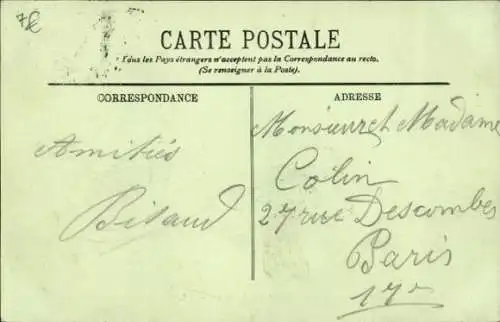 7€
CARTE POSTALE
Tous les Pays étrangers n'acceptent pas la Correspondance au recto.
(Se renseigner à la Poste).
CORRESPONDANCE
ADRESSE
Amitiés
Bisaud
Monsieur et Madame
Colin
27 rue Descombes
Paris
17e